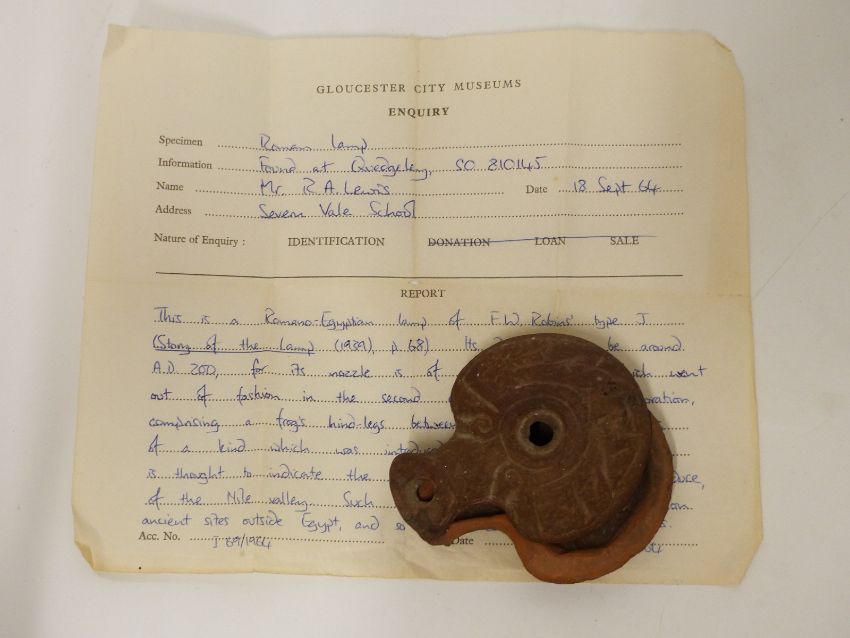 GLOUCESTER CITY MUSEUMS
ENQUIRY
Specimen Roman lamp
Information Found at Quedgeley, SO 810145
Name Mr. R.A. Lewis Date 18 Sept 64
Address Severn Vale School
Nature of Enquiry : IDENTIFICATION DONATION LOAN SALE
REPORT
This is a Romano-Egyptian lamp of F.W. Robins' type J
(Story of the Lamp (1939), p. 68). Its be around
A.D. 200, for its nozzle is of which went
out of fashion in the second
comprising a frog's hind-legs between
of a kind which was
is thought to indicate the
of the Nile valley. Such
ancient sites outside Egypt, and so
Acc. No. I 69/1964 Date